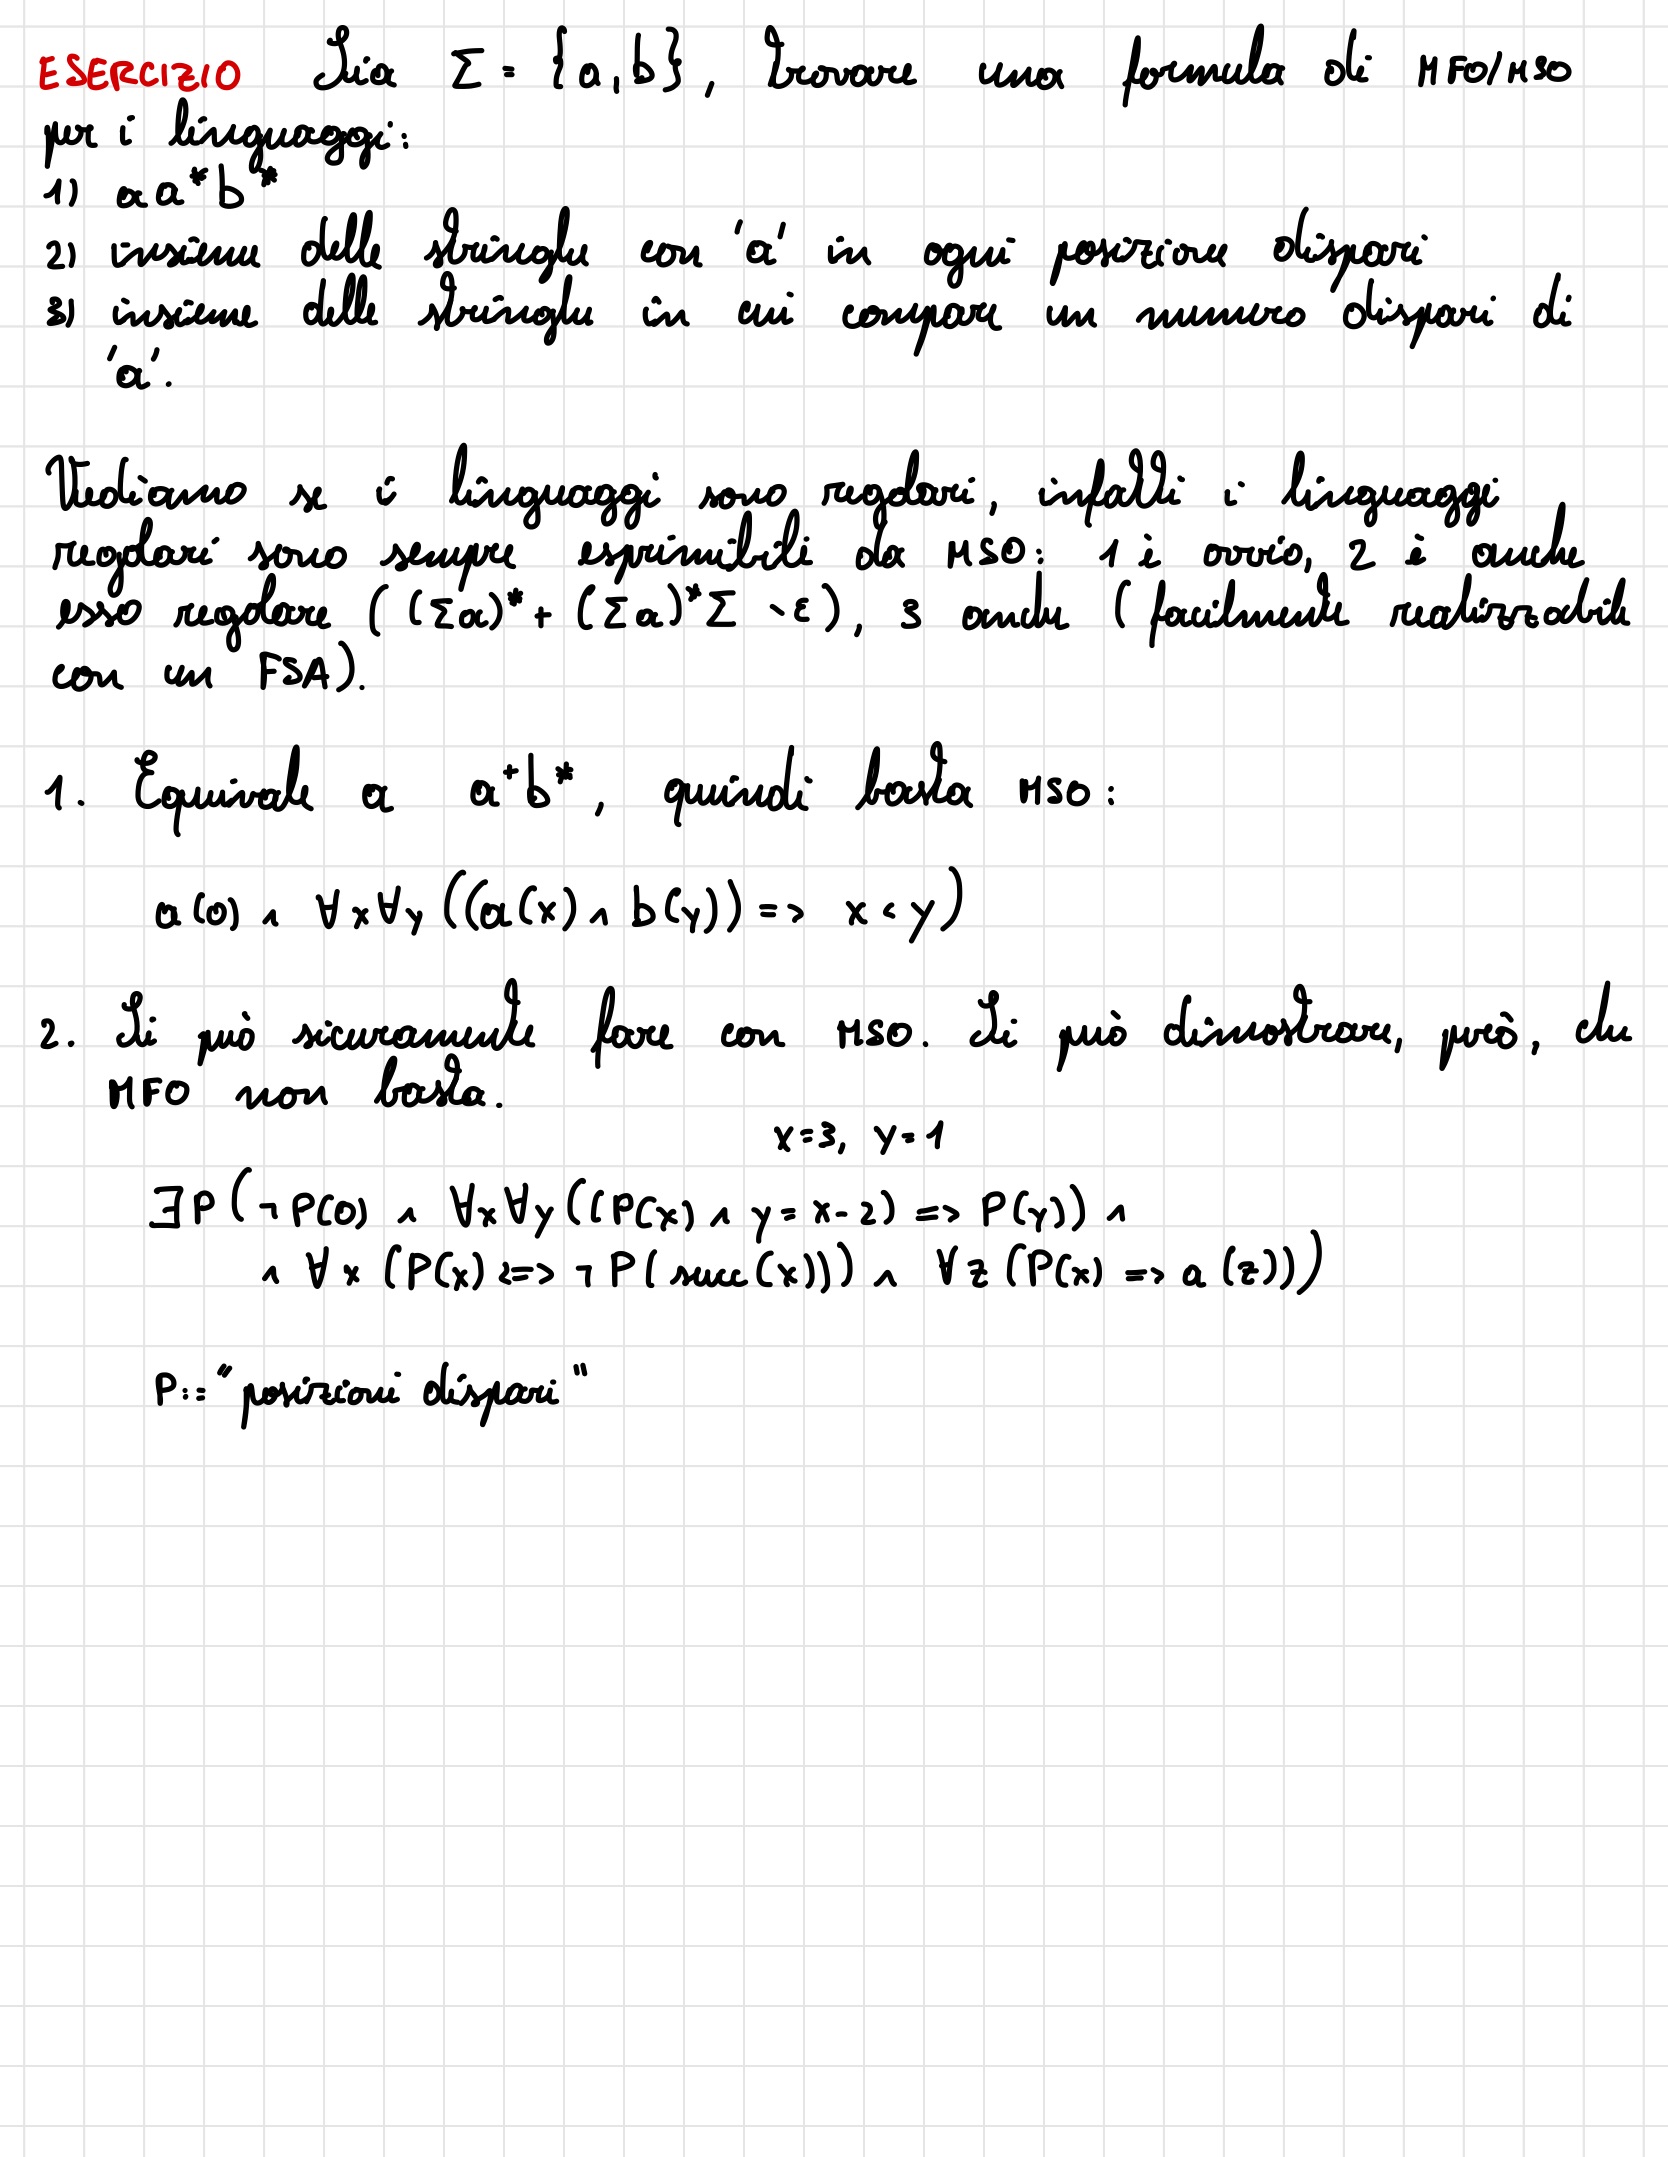 ESERCIZIO Sia Σ = {a,b}, trovare una formula di MFO/MSO
per i linguaggi:
1) aa*b*
2) insieme delle stringhe con 'a' in ogni posizione dispari
3) insieme delle stringhe in cui compare un numero dispari di
'a'.
Vediamo se i linguaggi sono regolari, infatti i linguaggi
regolari sono sempre esprimibili da MSO: 1 è ovvio, 2 è anche
esso regolare ((Σa)* + (Σa)*Σ \ ε), 3 anche (facilmente realizzabile
con un FSA).
1. Equivale a a⁺b*, quindi basta MSO:
a(0) ∧ ∀x∀y((a(x) ∧ b(y)) => x < y)
2. Si può sicuramente fare con MSO. Si può dimostrare, però, che
MFO non basta.
x=3, y=1
∃P(¬P(0) ∧ ∀x∀y((P(x) ∧ y = x-2) => P(y)) ∧
∧ ∀x (P(x) <=> ¬P(succ(x))) ∧ ∀z (P(x) => a(z)))
P:= "posizioni dispari"